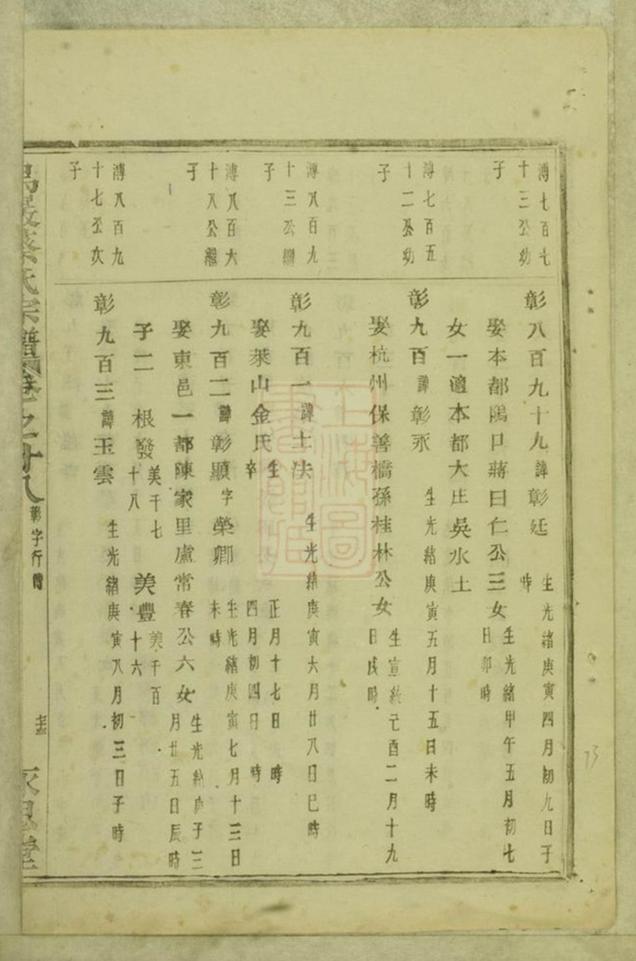 溥七百七
十三公幼
子
彰八百九十九諱彰廷 生光緒庚寅四月初九日子
時
娶本都隅口蔣曰仁公三女 生光緒甲午五月初七
日卯時
女一適本都大庄吳水土
溥七百五
十二公幼
子
彰九百諱彰永 生光緒庚寅五月十五日未時
娶杭州保善橋孫桂林公女 生宣統己酉二月十九
日戌時
溥八百九
十三公繼
子
彰九百一諱土法 生光緒庚寅六月廿八日巳時
娶萊山金氏 生 正月十七日 時
卒 四月初四日 時
溥八百六
十八公繼
子
彰九百二諱彰顯字榮卿 生光緒庚寅七月十三日
未時
娶東邑一都陳家里盧常春公六女 生光緒庚子三
月廿五日辰時
子二 根發 美千七
十八 美豐 美千百
十六
溥八百九
十七公次
子
彰九百三諱玉雲 生光緒庚寅八月初三日子時
氏宗譜卷之廿八 彰字行傳